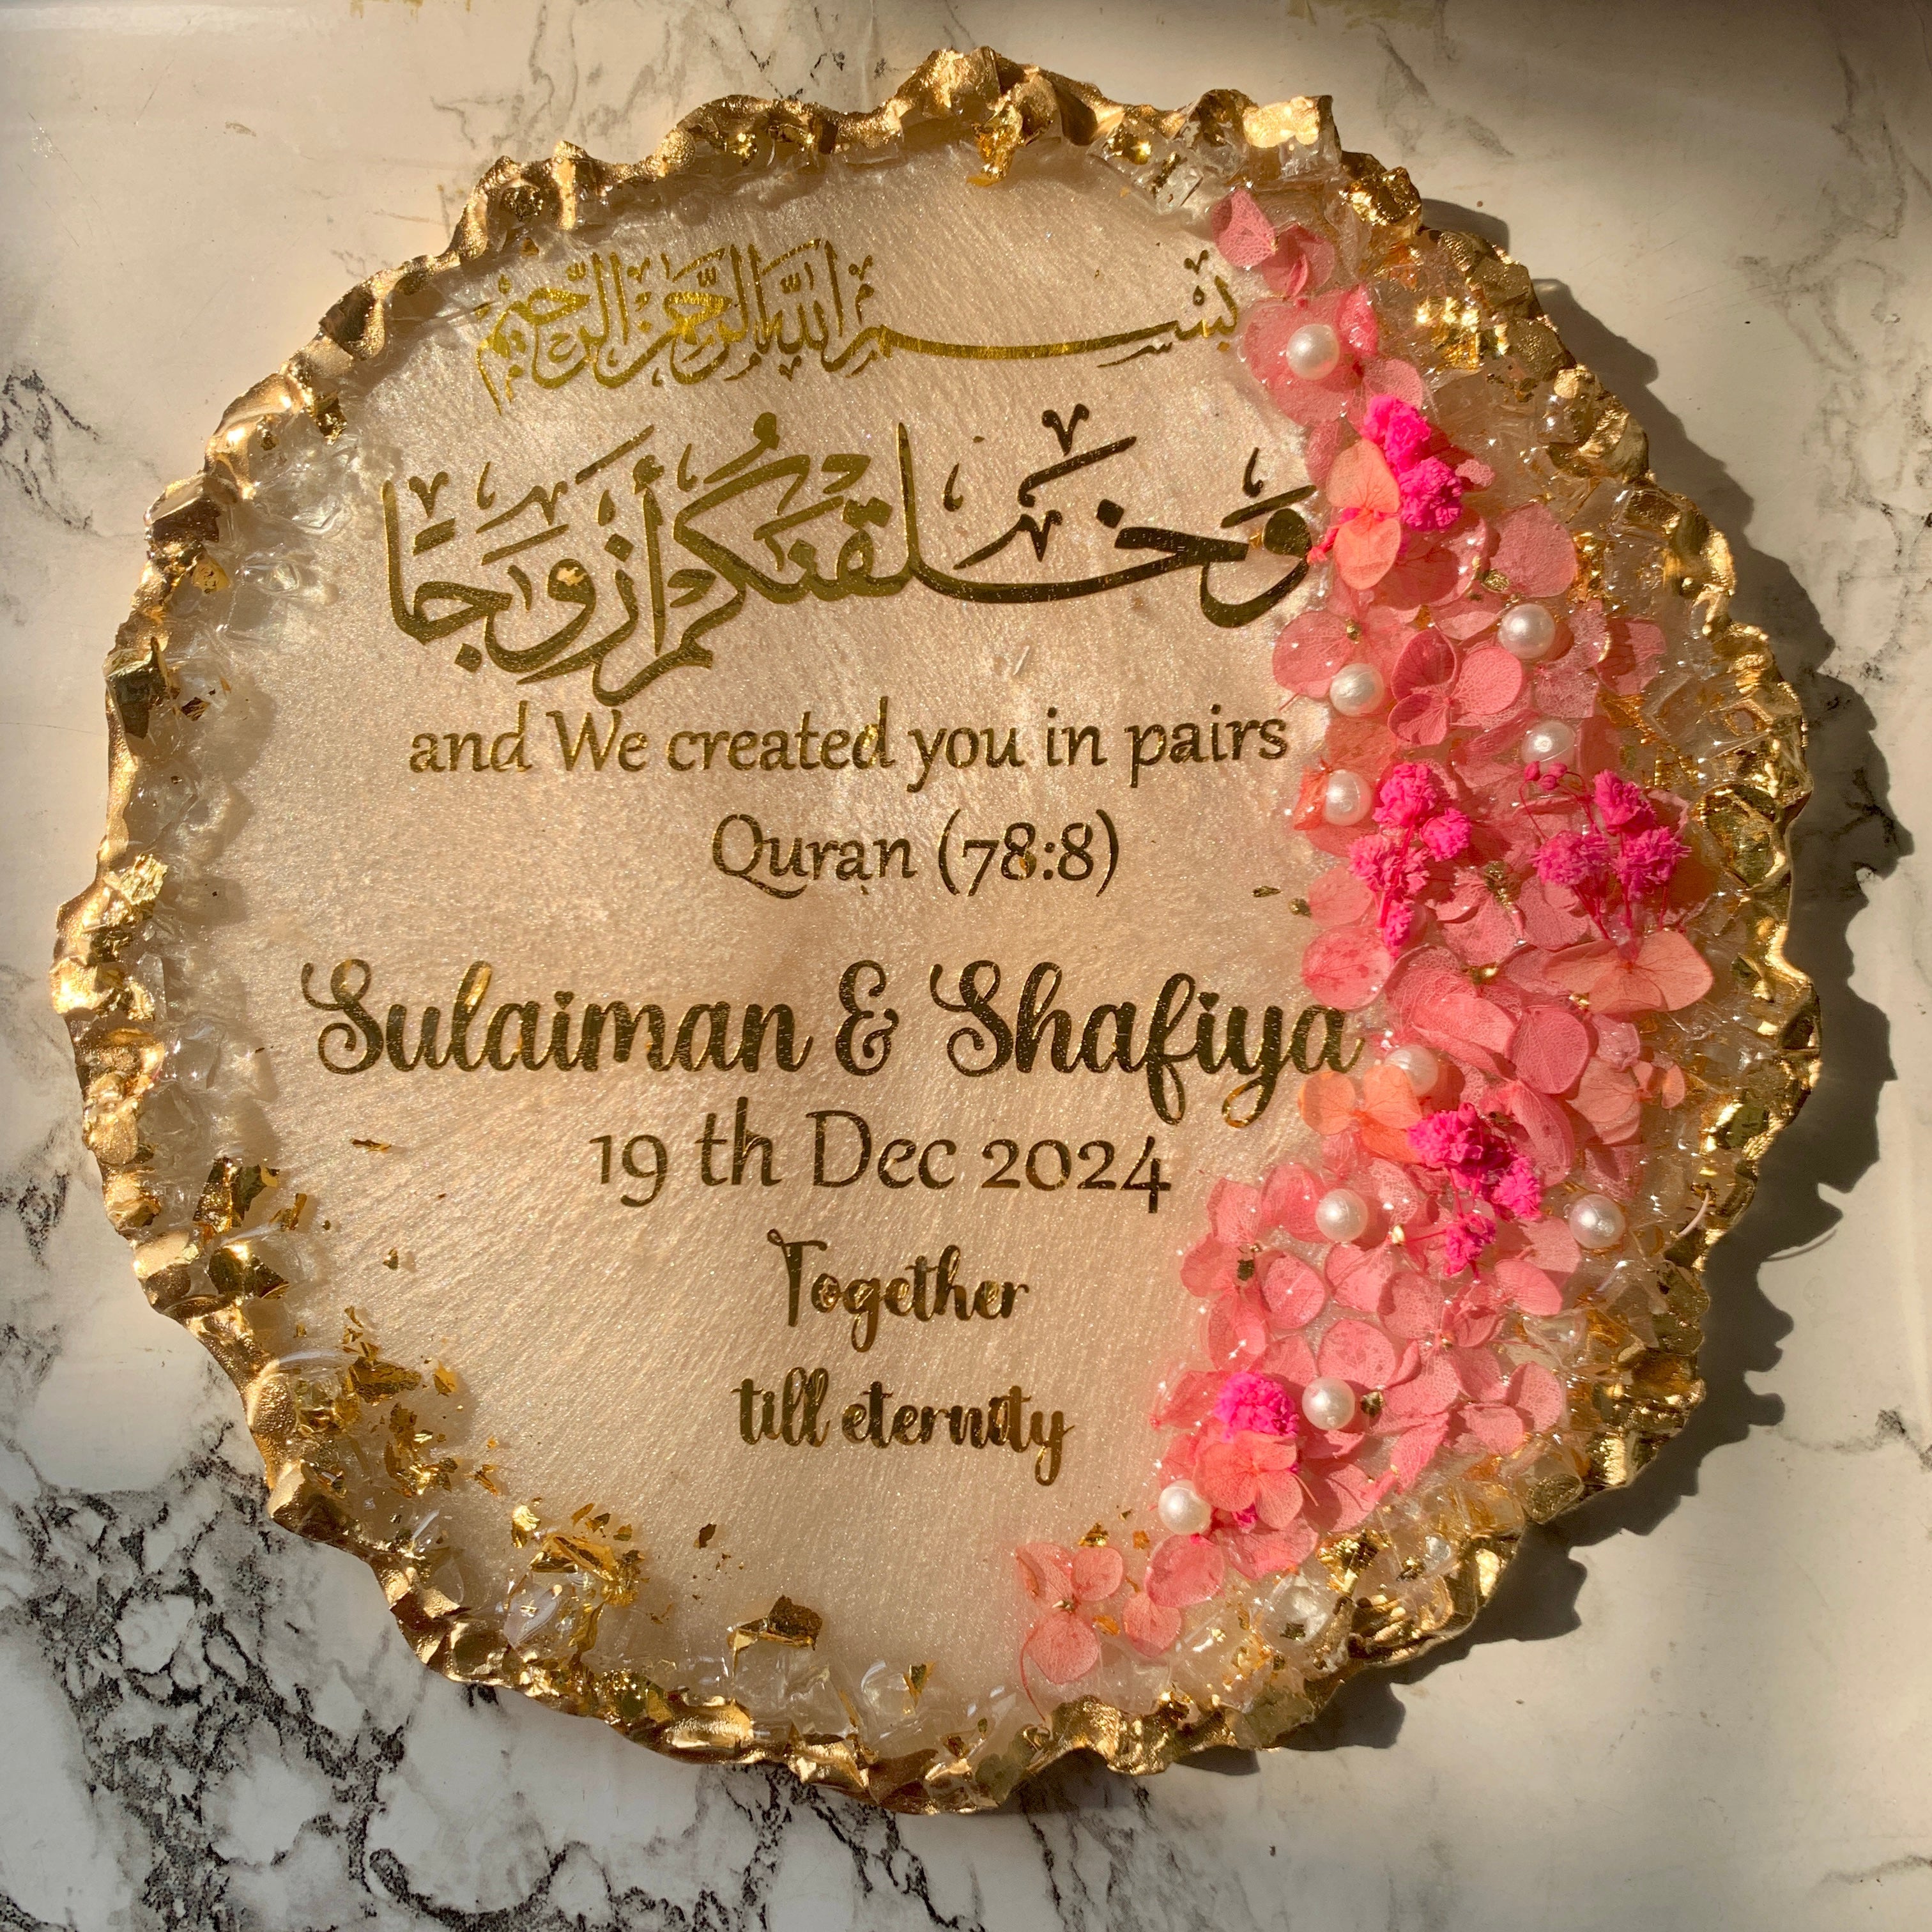 بِسْمِ اللَّهِ الرَّحْمَٰنِ الرَّحِيمِ
وَخَلَقْنَٰكُمْ أَزْوَٰجًا
and We created you in pairs
Quran (78:8)
Sulaiman & Shafiya
19 th Dec 2024
Together
till eternity